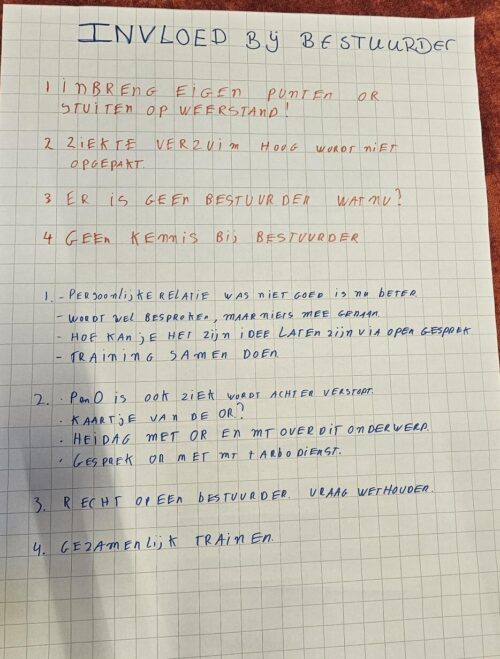 INVLOED BIJ BESTUURDER
1 INBRENG EIGEN PUNTEN OR
STUITEN OP WEERSTAND!
2 ZIEKTE VERZUIM HOOG WORDT NIET
OPGEPAKT.
3 ER IS GEEN BESTUURDER WAT NU?
4 GEEN KENNIS BIJ BESTUURDER
1. - PERSOONLIJKE RELATIE WAS NIET GOED IS NU BETER
- WORDT WEL BESPROKEN, MAAR NIETS MEE GEDAAN.
- HOE KAN JE HET ZIJN IDEE LATEN ZIJN VIA OPEN GESPREK
- TRAINING SAMEN DOEN.
2. • PenO IS OOK ZIEK WORDT ACHTER VERSTOPT.
• KAARTJE VAN DE OR?
• HEIDAG MET OR EN MT OVER DIT ONDERWERP.
• GESPREK OR MET MT + ARBODIENST.
3. RECHT OP EEN BESTUURDER. VRAAG WETHOUDER.
4. GEZAMENLIJK TRAINEN.